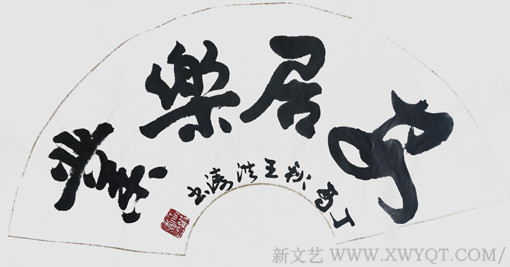 安居樂業
丁酉秋王洪濤书
新文艺 WWW.XWYQT.COM/